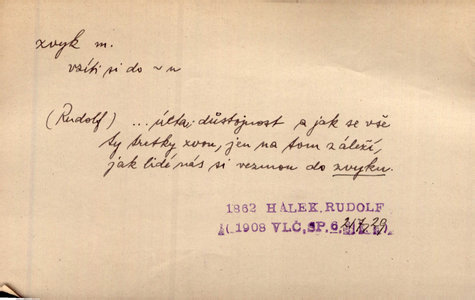 zvyk m.
vzíti si do ~ u
(Rudolf) ... úcta, důstojnost a jak se vše
ty tretky zvou, jen na tom záleží,
jak lidé nás si vezmou do zvyku.
1862 HÁLEK, RUDOLF
1908 VLČ, SP. 6,